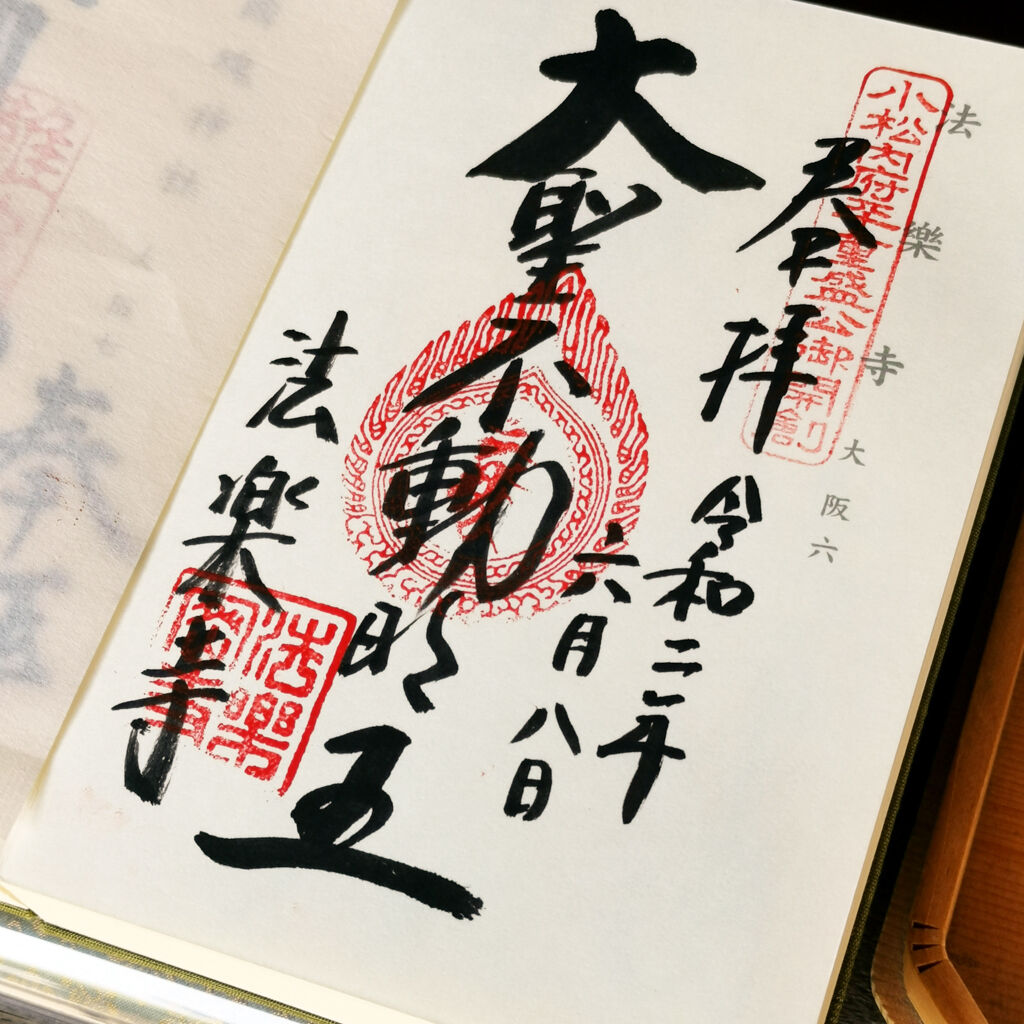 法樂寺 大阪六
小松内府平重盛公御開創
奉拝
令和二年
六月八日
大聖不動明王
法楽寺
法樂